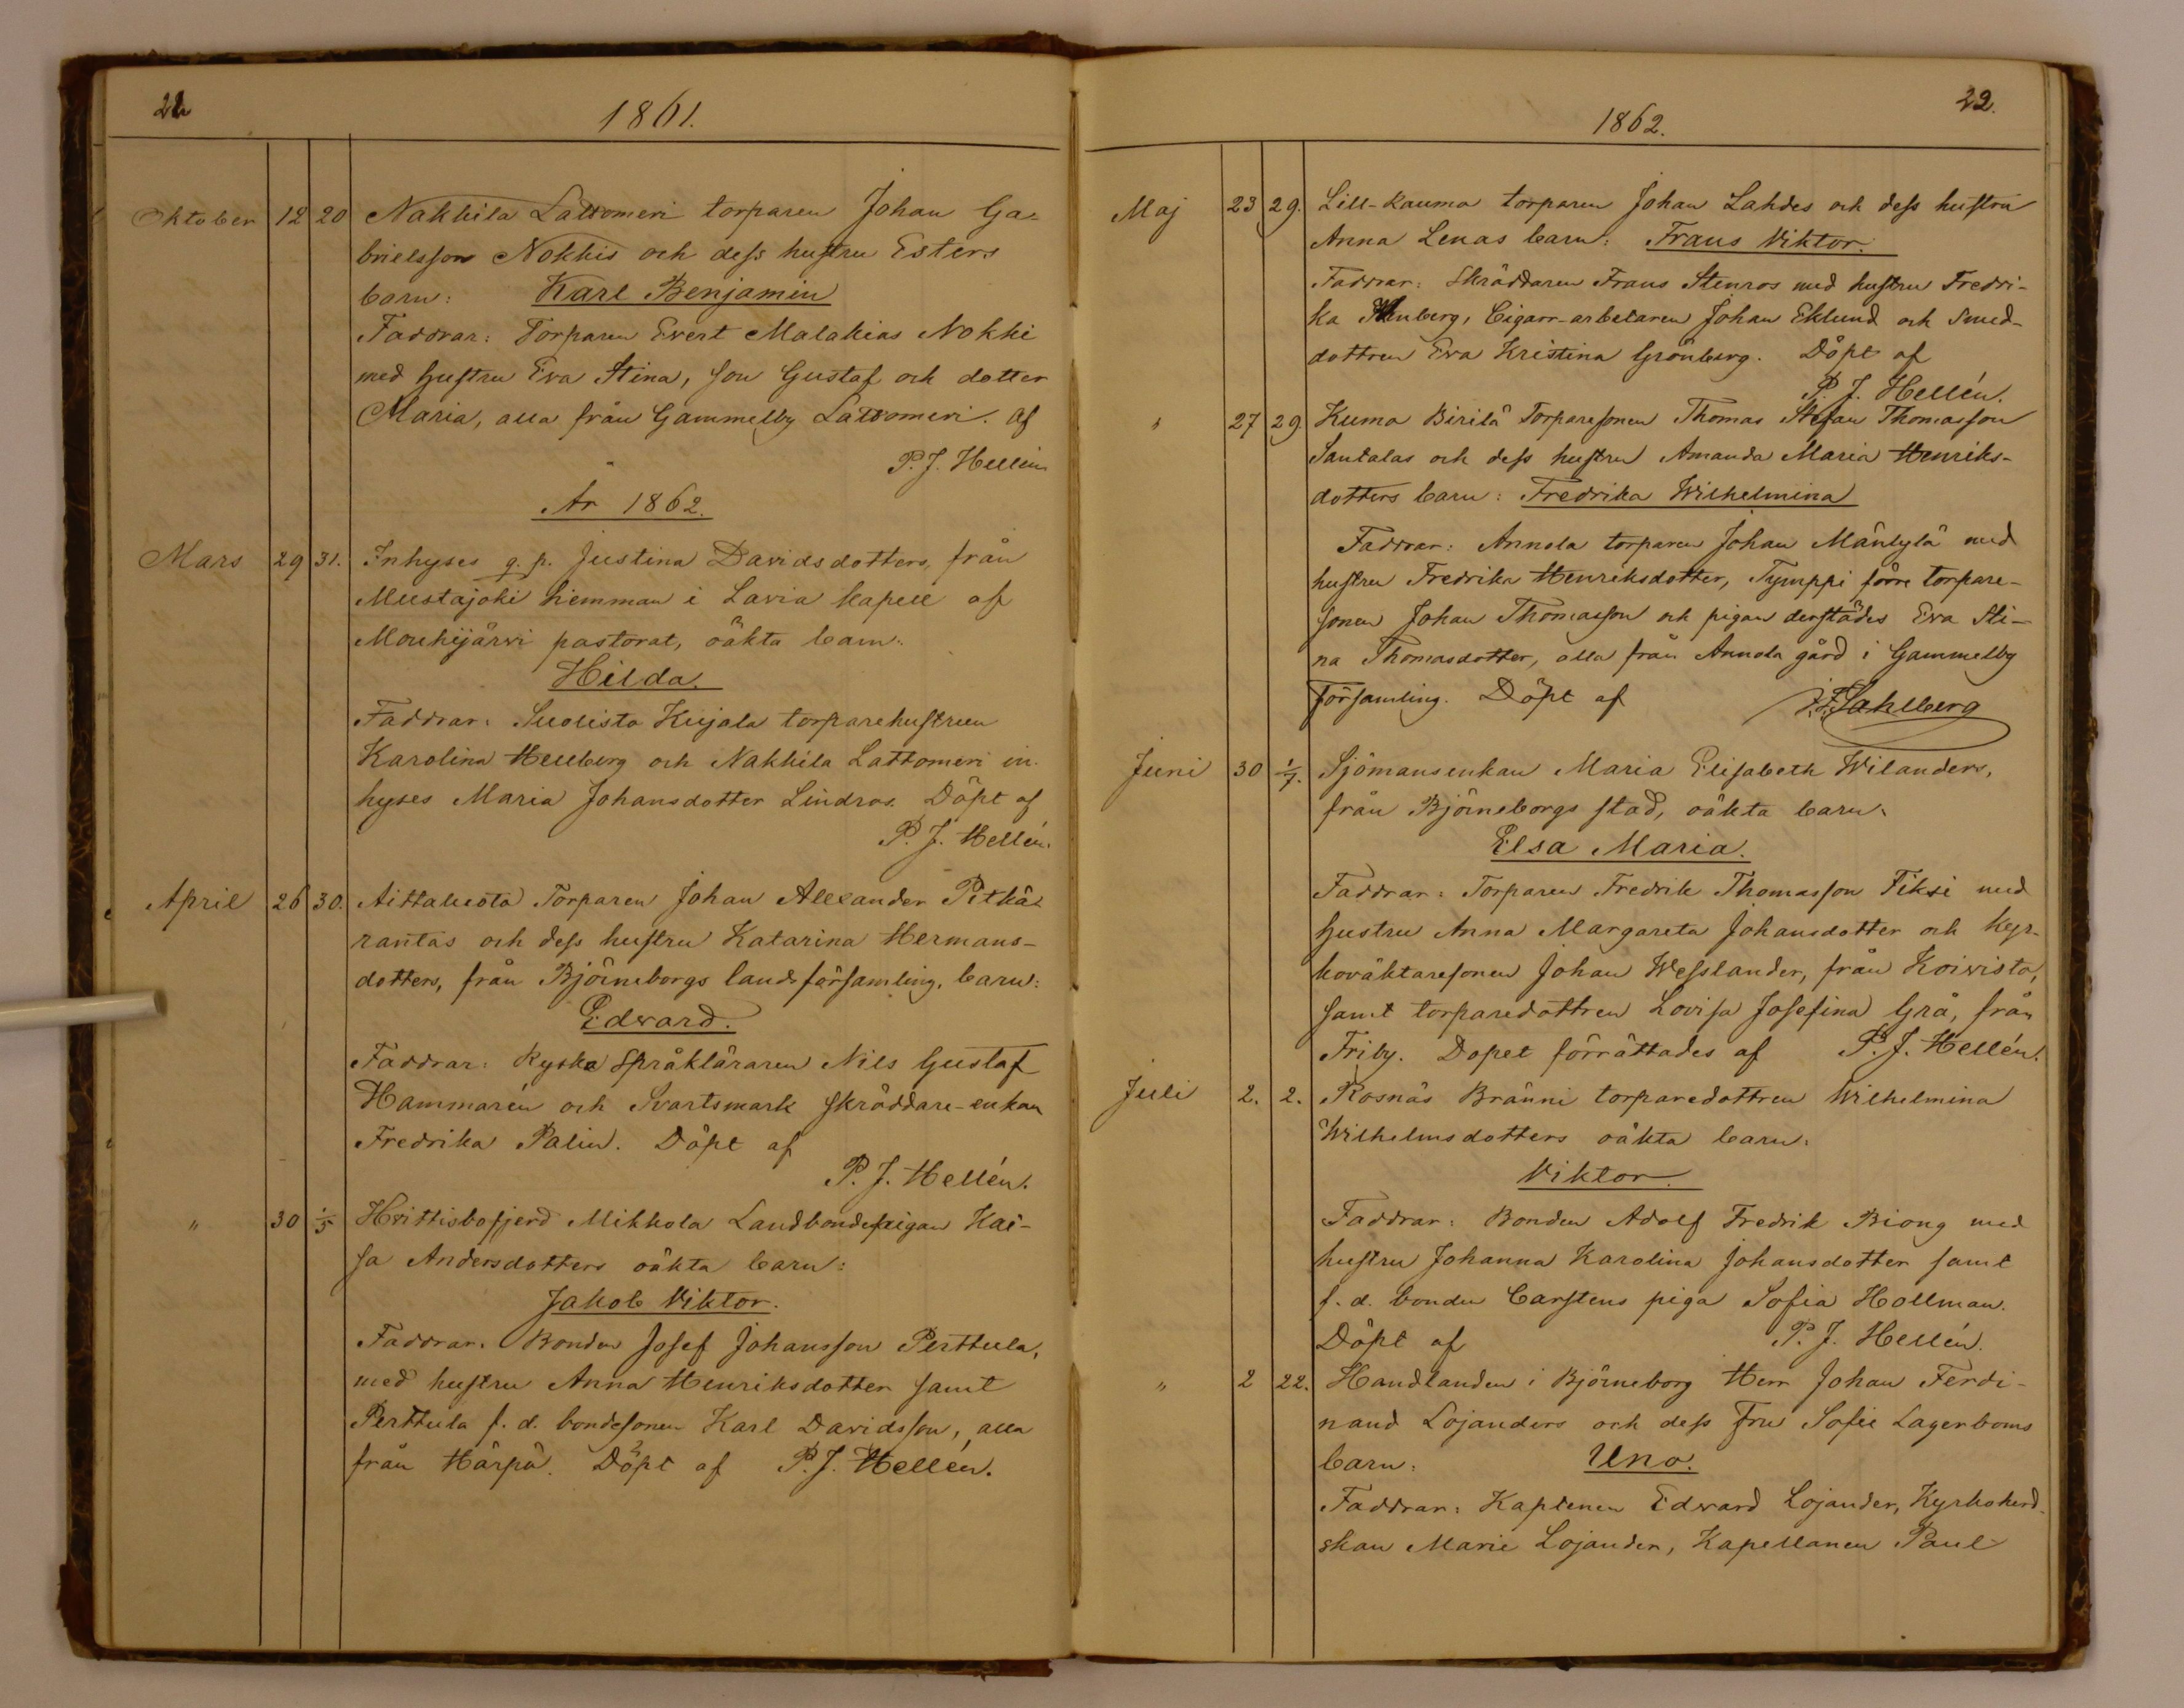 21
1861.
Oktober 12 20 Nakkila Lattomeri torparen Johan Ga-
brielsson Nokkis och dess hustru Esters
barn: Karl Benjamin
Faddrar: Torparen Evert Malakias Nokki
med hustru Eva Stina, son Gustaf och dotter
Maria, alla från Gammelby Lattomeri. af
P. J. Hellén
År 1862.
Mars 29 31. Inhyses q. p. Justina Davidsdotters, från
Mustajoki hemman i Lavia kapell af
Mouhijärvi pastorat, oäkta barn:
Hilda.
Faddrar: Suolisto Kujala torparehustrun
Karolina Hellberg och Nakkila Lattomeri in-
hyses Maria Johansdotter Lindros. Döpt af
P. J. Hellén.
April 26 30. Aittaluoto Torparen Johan Alexander Pitkä-
rantas och dess hustru Katarina Hermans-
dotters, från Björneborgs landsförsamling, barn:
Edvard.
Faddrar: Ryska Språkläraren Nils Gustaf
Hammarén och Svartsmark skräddare-enkan
Fredrika Palin. Döpt af
P. J. Hellén.
" 30 1/5 Hvittisbofjerd Mikkola Landbondepigan Kai-
sa Andersdotters oäkta barn:
Jakob Viktor.
Faddrar: Bonden Josef Johansson Perttula,
med hustru Anna Henriksdotter samt
Perttula f. d. bondesonen Karl Davidsson, alla
från Härpö. Döpt af P. J. Hellén.
22.
1862.
Maj 23 29. Lill-Rauma torparen Johan Lahdes och dess hustru
Anna Lenas barn: Frans Viktor.
Faddrar: Skräddaren Frans Stenros med hustru Fredri-
ka Cigarr-arbetaren Johan Eklund och Smed-
dottren Eva Kristina Grönberg. Döpt af
P. J. Hellén.
" 27 29. Kumo Birilä Torparesonen Thomas Stefan Thomasson
Santalas och dess hustru Amanda Maria Henriks-
dotters barn: Fredrika Wilhelmina
Faddrar: Annola torparen Johan Mäntylä med
hustru Fredrika Henriksdotter, Tymppi förre torpare-
sonen Johan Thomasson och pigan derstädes Eva Sti-
na Thomasdotter, alla från Annola gård i Gammelby
församling. Döpt af J. F. Sahlberg
Juni 30 1/7. Sjömansenkan Maria Elisabeth Wilanders,
från Björneborgs stad, oäkta barn:
Elsa Maria.
Faddrar: Torparen Fredrik Thomasson Fiksi med
hustru Anna Margareta Johansdotter och kyr-
koväktaresonen Johan Wesslander, från Koivisto,
samt torparedottren Lovisa Josefina Grå, från
Friby. Dopet förrättades af P. J. Hellén.
Juli 2. 2. Rosnäs Bränni torparedottren Wilhelmina
Wilhelmsdotters oäkta barn:
Viktor.
Faddrar: Bonden Adolf Fredrik Biong med
hustru Johanna Karolina Johansdotter samt
f. d. bonden Carstens piga Sofia Hollman.
Döpt af P. J. Hellén.
" 2 22. Handlanden i Björneborg Herr Johan Ferdi-
nand Lojanders och dess Fru Sofie Lagerboms
barn: Uno.
Faddrar: Kaptenen Edvard Lojander, Kyrkoherd-
skan Marie Lojander, Kapellanen Paul